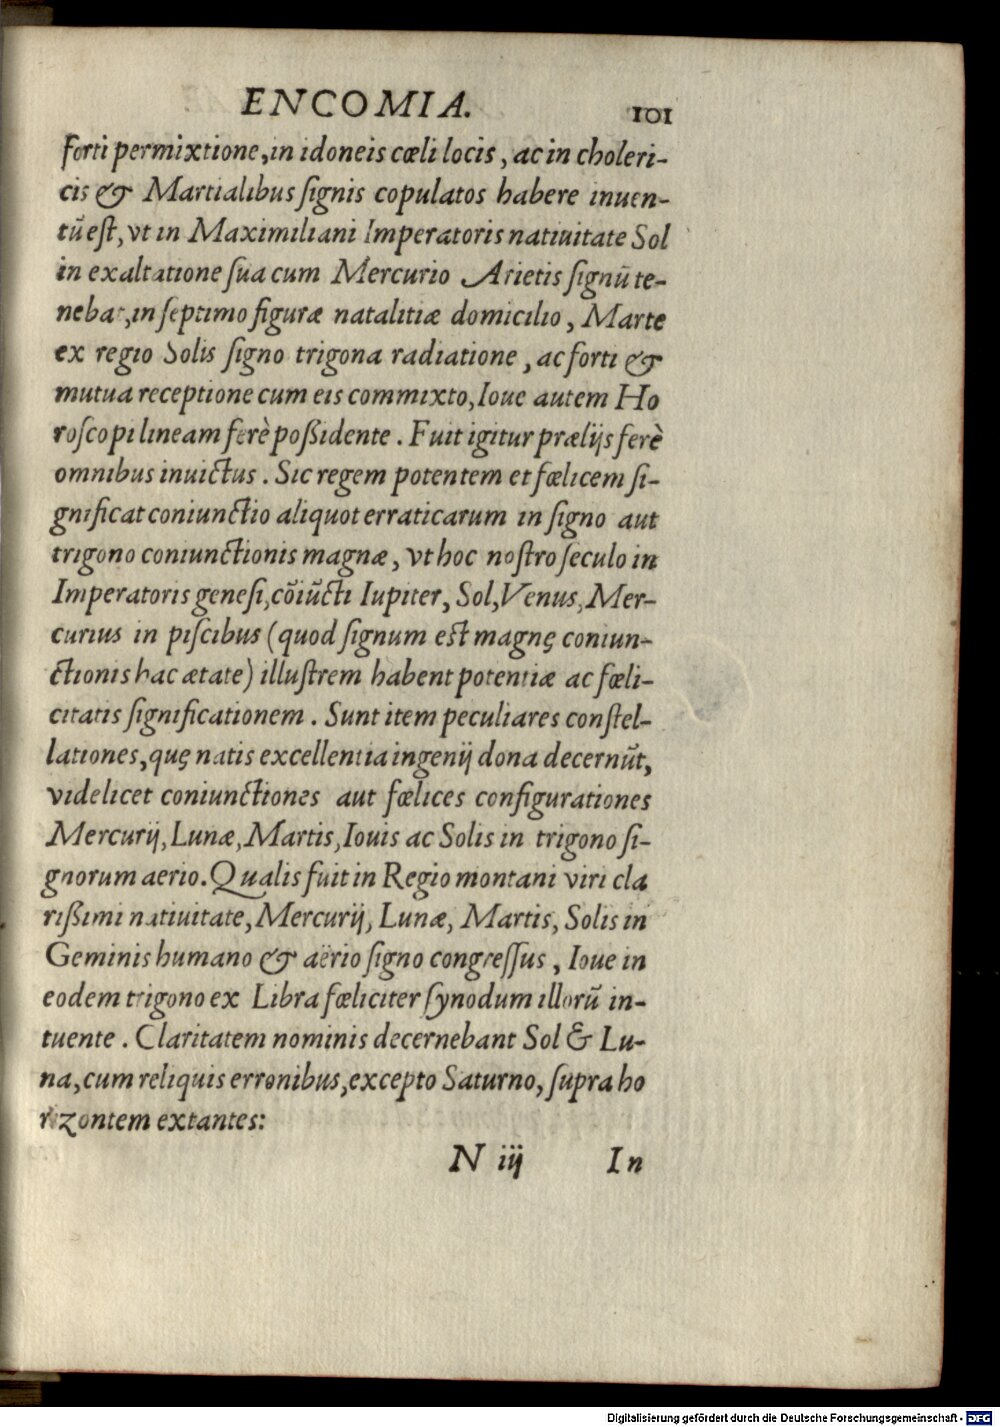 ENCOMIA. 101
forti permixtione, in idoneis cœli locis, ac in choleri-
cis & Martialibus ſignis copulatos habere inuen-
tū eſt, vt in Maximiliani Imperatoris natiuitate Sol
in exaltatione ſua cum Mercurio Arietis ſignū te-
nebat, in ſeptimo figuræ natalitiæ domicilio, Marte
ex regio Solis ſigno trigona radiatione, ac forti &
mutua receptione cum eis commixto, Ioue autem Ho
roſcopi lineam ferè poßidente. Fuit igitur prælijs ferè
omnibus inuictus. Sic regem potentem et fœlicem ſi-
gnificat coniunctio aliquot erraticarum in ſigno aut
trigono coniunctionis magnæ, vt hoc noſtro ſeculo in
Imperatoris geneſi, cōiūcti Iupiter, Sol, Venus, Mer-
curius in piſcibus (quod ſignum eſt magnę coniun-
ctionis hac ætate) illuſtrem habent potentiæ ac fœli-
citatis ſignificationem. Sunt item peculiares conſtel-
lationes, quę natis excellentia ingenij dona decernūt,
videlicet coniunctiones aut fœlices configurationes
Mercurij, Lunæ, Martis, Iouis ac Solis in trigono ſi-
gnorum aerio. Qualis fuit in Regio montani viri cla
rißimi natiuitate, Mercurij, Lunæ, Martis, Solis in
Geminis humano & aërio ſigno congreſſus, Ioue in
eodem trigono ex Libra fœliciter ſynodum illorū in-
tuente. Claritatem nominis decernebant Sol & Lu-
na, cum reliquis erronibus, excepto Saturno, ſupra ho
rizontem extantes:
N iij In
Digitalisierung gefördert durch die Deutsche Forschungsgemeinschaft - DFG